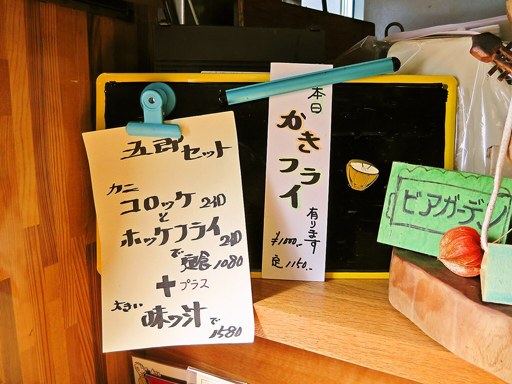 五郎セット
カニ
コロッケ 230
と
ホッケフライ 210
で 定食 1080
＋プラス
大きい
味ワ汁で
1580
本日
かき
フライ
有ります
¥1000.-
定 1150.-
ビアガーデン